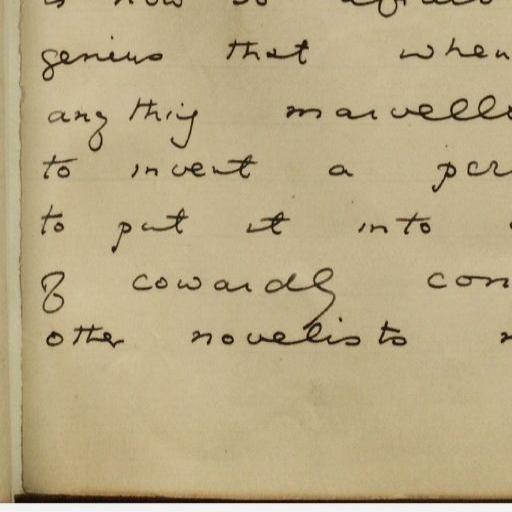 is now so afraid
genius that when
any thing marvello
to invent a per
to put it into
of cowardly con
other novelists